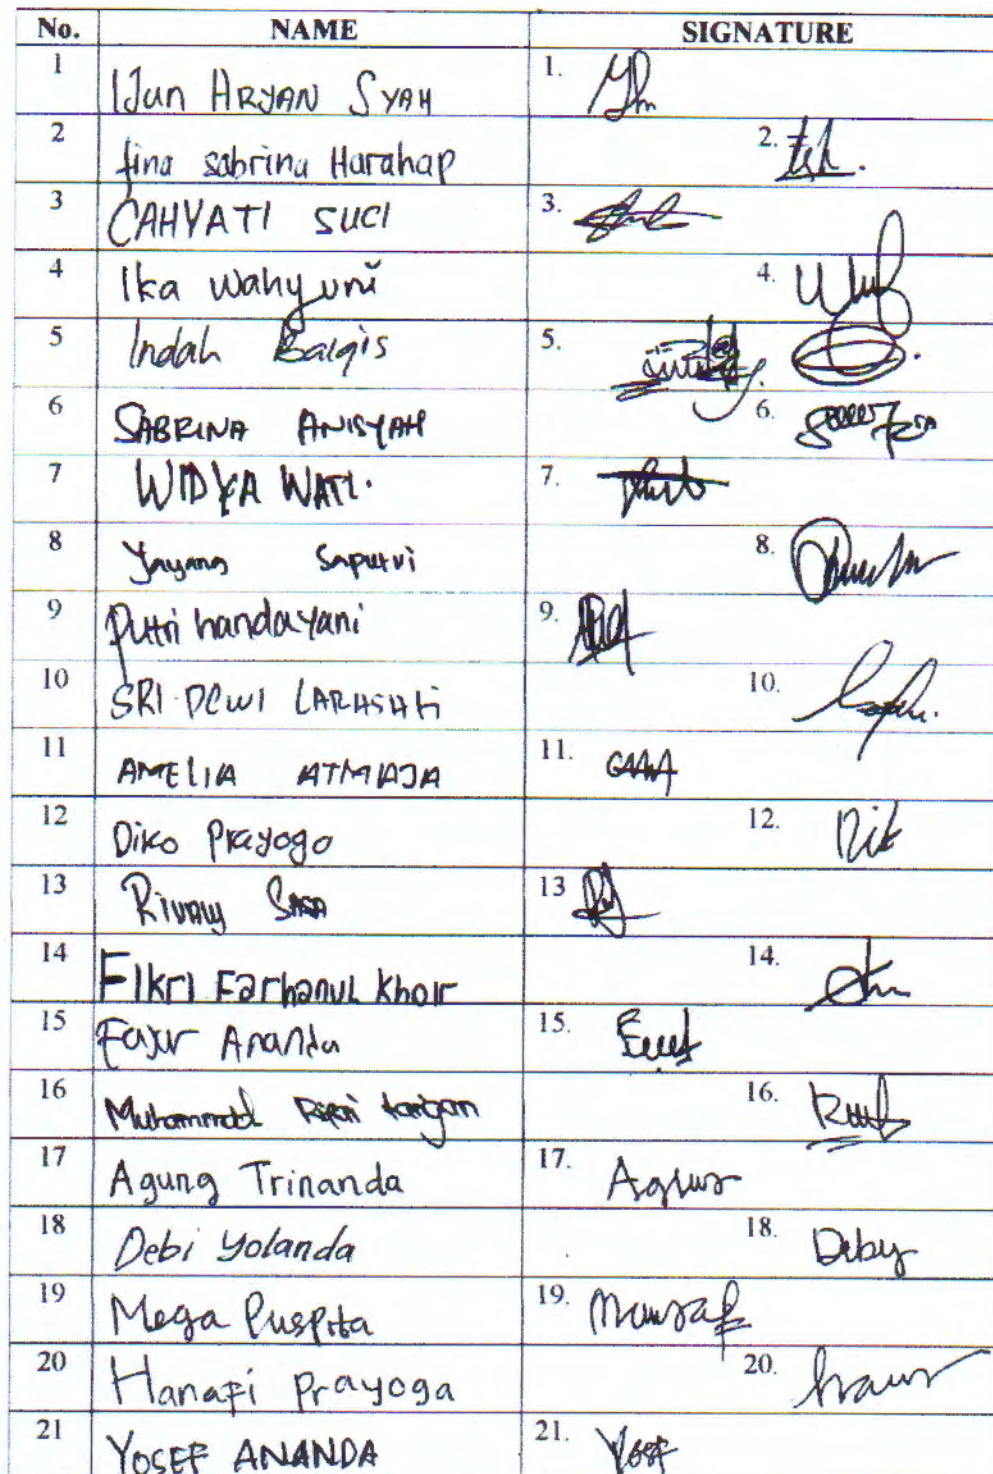 No. NAME SIGNATURE
1 IJun ARYAN SYAH 1.
2 fina sabrina Harahap 2.
3 CAHYATI SUCI 3.
4 Ika Wahyuni 4.
5 Indah Balqis 5.
6 SABRINA ANISYAH 6.
7 WIDYA WATI. 7.
8 Yayang Saputri 8.
9 Putri handayani 9.
10 SRI DEWI LARASATi 10.
11 AMELIA ATMAJA 11.
12 Diko Prayogo 12.
13 13
14 FIKri Farhanul khoir 14.
15 Fajar Ananda 15.
16 Muhammad tarigan 16.
17 Agung Trinanda 17.
18 Debi Yolanda 18. Deby
19 Mega Puspita 19.
20 Hanafi Prayoga 20.
21 YOSEF ANANDA 21. Yosef